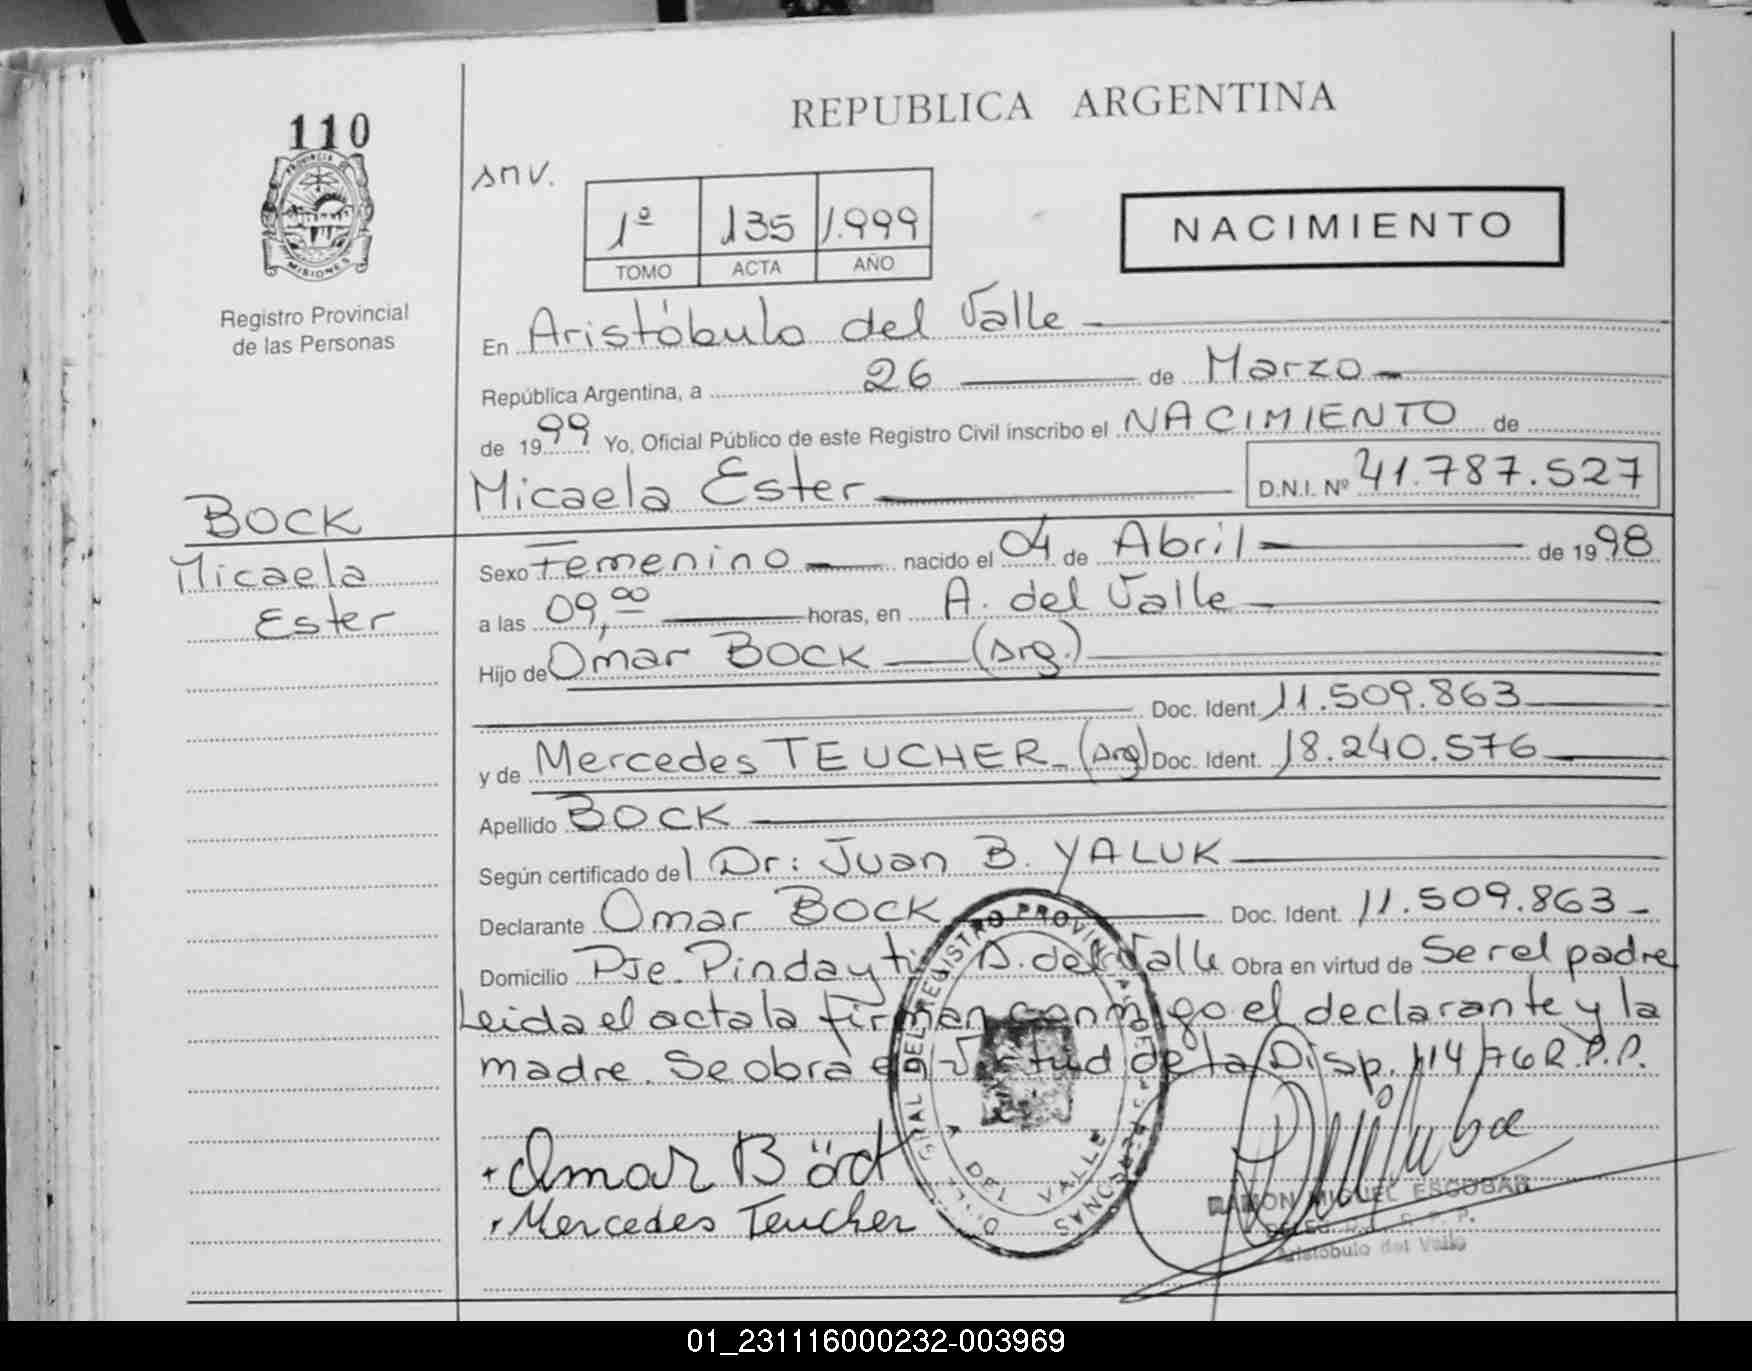 110
REPUBLICA ARGENTINA
snv.
1º 135 1.999
TOMO ACTA AÑO
NACIMIENTO
PROVINCIA DE
MISIONES
Registro Provincial
de las Personas
En Aristóbulo del Valle
República Argentina, a 26 de Marzo
de 1999 Yo, Oficial Público de este Registro Civil inscribo el NACIMIENTO de
Micaela Ester D.N.I. Nº 41.787.527
BOCK
Micaela
Ester
Sexo Femenino nacido el 04 de Abril de 1998
a las 09,00 horas, en A. del Valle
Hijo de Omar BOCK (Arg.)
Doc. Ident. 11.509.863
y de Mercedes TEUCHER (Arg) Doc. Ident. 18.240.576
Apellido BOCK
Según certificado del Dr: Juan B. YALUK
Declarante Omar BOCK Doc. Ident. 11.509.863
Domicilio Pje. Pindayti A. del Valle Obra en virtud de Ser el padre
Leida el acta la firman conmigo el declarante y la
madre. Se obra en Virtud de la Disp. 114/76 R.P.P.
Omar Böck
Mercedes Teucher
DEL REGISTRO PROVINCIAL DE LAS PERSONAS
DEL VALLE
RAMON MIGUEL ESCOBAR
Aristóbulo del Valle
01_231116000232-003969